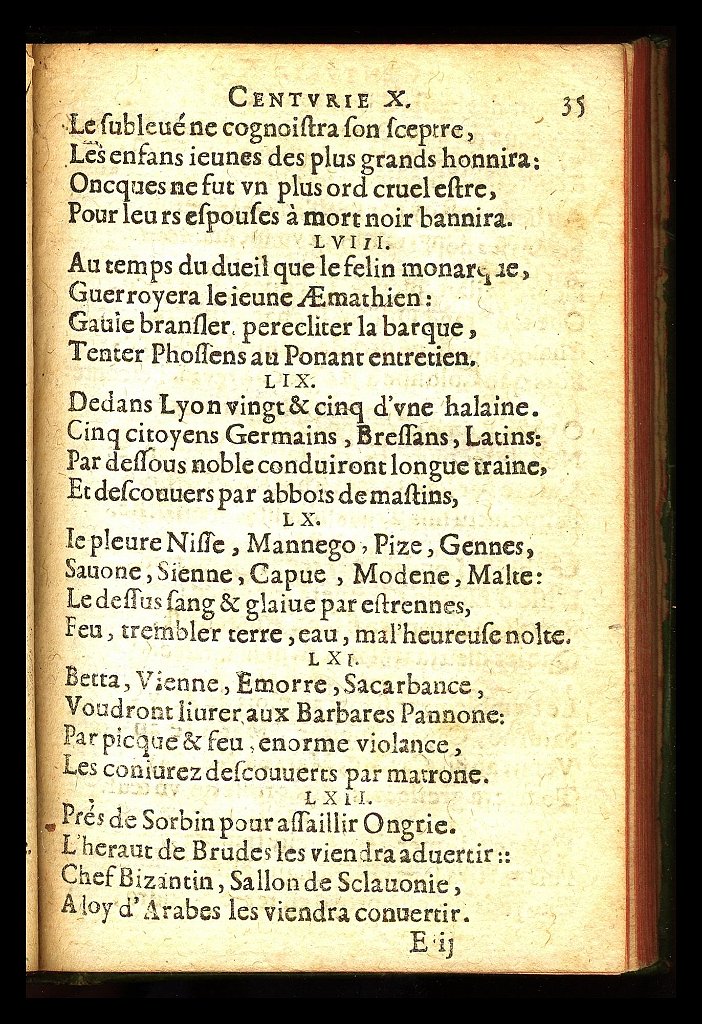 CENTVRIE X. 35
Le ſubleué ne cognoiſtra ſon ſceptre,
Les enfans ieunes des plus grands honnira:
Oncques ne fut vn plus ord cruel eſtre,
Pour leu rs eſpouſes à mort noir bannira.
LVIII.
Au temps du dueil que le felin monarque,
Guerroyera le ieune Æmathien:
Gaule branſler, perecliter la barque,
Tenter Phoſſens au Ponant entretien.
LIX.
Dedans Lyon vingt & cinq d'vne halaine.
Cinq citoyens Germains, Breſſans, Latins:
Par deſſous noble conduiront longue traine,
Et deſcouuers par abbois de maſtins,
LX.
Ie pleure Niſſe, Mannego, Pize, Gennes,
Sauone, Sienne, Capue, Modene, Malte:
Le deſſus ſang & glaiue par eſtrennes,
Feu, trembler terre, eau, mal'heureuſe nolte.
LXI.
Betta, Vienne, Emorre, Sacarbance,
Voudront liurer aux Barbares Pannone:
Par picque & feu, enorme violance,
Les coniurez deſcouuerts par matrone.
LXII.
Prés de Sorbin pour aſſaillir Ongrie.
L'heraut de Brudes les viendra aduertir::
Chef Bizantin, Sallon de Sclauonie,
A loy d'Arabes les viendra conuertir.
E ij